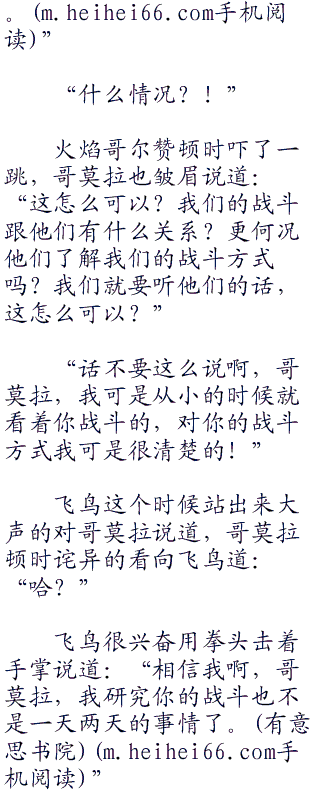 。(m.heihei66.com手机阅
读)”
“什么情况？！”
火焰哥尔赞顿时吓了一
跳，哥莫拉也皱眉说道：
“这怎么可以？我们的战斗
跟他们有什么关系？更何况
他们了解我们的战斗方式
吗？我们就要听他们的话，
这怎么可以？”
“话不要这么说啊，哥
莫拉，我可是从小的时候就
看着你战斗的，对你的战斗
方式我可是很清楚的！”
飞鸟这个时候站出来大
声的对哥莫拉说道，哥莫拉
顿时诧异的看向飞鸟道：
“哈？”
飞鸟很兴奋用拳头击着
手掌说道：“相信我啊，哥
莫拉，我研究你的战斗也不
是一天两天的事情了。(有意
思书院)(m.heihei66.com手
机阅读)”